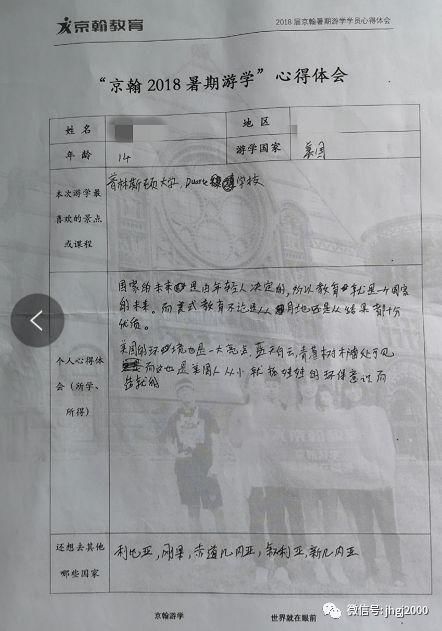 京翰教育
2018届京翰暑期游学学员心得体会
“京翰2018暑期游学”心得体会
姓名
地区
年龄 14
游学国家 美国
本次游学最喜欢的景点或课程
普林斯顿大学, Duarte 学校
个人心得体会（所学、所得）
国家的未来是由年轻人决定的，所以教育就是一个国家
的未来。而美式教育不论是从 还是从结果都十分
优质。
美国的环境也是一大亮点，蓝天白云，青葱树木随处可见
而这也是美国人从小就 的环保意识而
造就的
还想去其他哪些国家
利比亚，刚果，赤道几内亚，叙利亚，新几内亚
京翰游学
世界就在眼前
微信号: jhgj2000